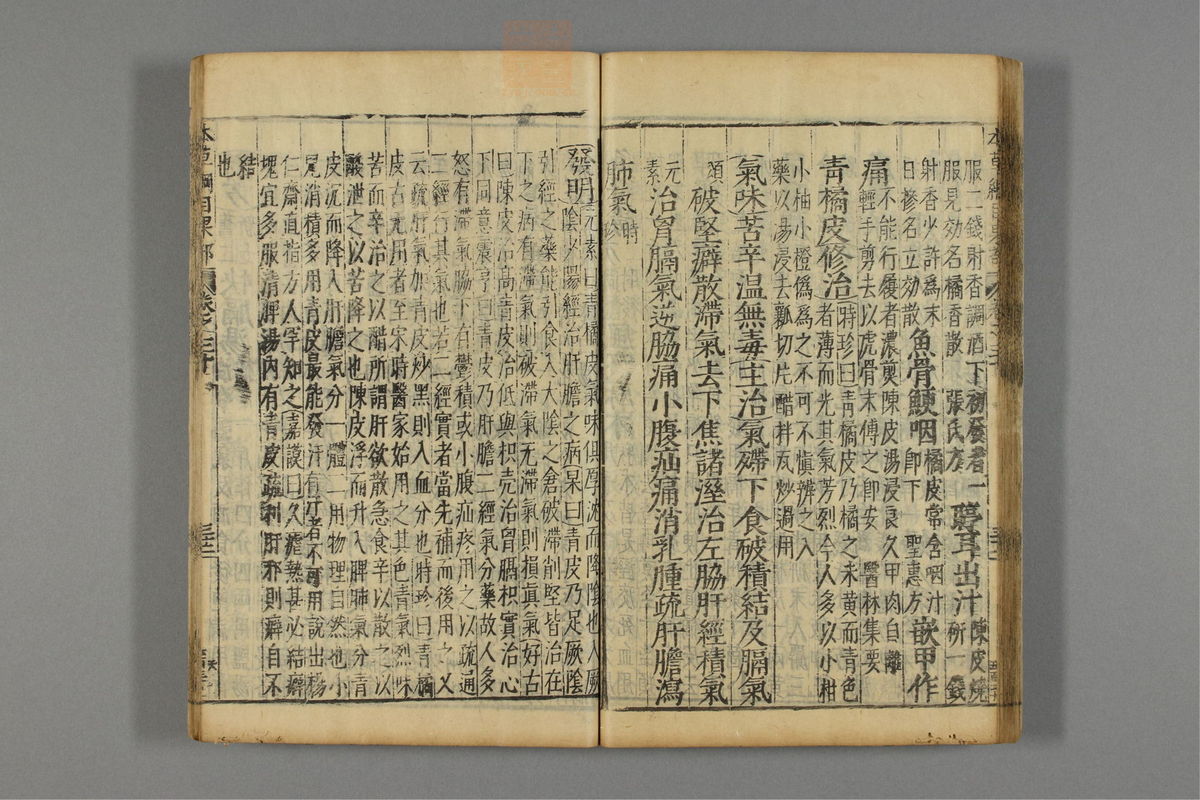 服二錢射香調酒下初發者一
服見効名橘香散 張氏方
聤耳出汁
陳皮燒
研一錢
射香少許為末
日摻名立効散
魚骨鯁咽
橘皮常含咽汁
即下 聖惠方
嵌甲作
痛
不能行履者濃煎陳皮湯浸良久甲肉自離
輕手剪去以虎骨末傅之即安 醫林集要
青橘皮修治
時珍曰青橘皮乃橘之未黄而青色
者薄而光其氣芳烈今人多以小柑
小柚小橙偽爲之不可不慎辨之入
藥以湯浸去瓤切片醋拌瓦炒過用
氣味苦辛温無毒主治氣滯下食破積結及膈氣
頌 破堅癖散滯氣去下焦諸溼治左脇肝經積氣
元素 治胷膈氣逆脇痛小腹疝痛消乳腫疏肝膽瀉
肺氣 時珍
發明
元素曰青橘皮氣味俱厚沈而降陰也入厥
陰少陽經治肝膽之病杲曰青皮乃足厥陰
引經之藥能引食入太陰之倉破滯削堅皆治在
下之病有滯氣則破滯氣无滯氣則損真氣好古
曰陳皮治高青皮治低與枳壳治胷膈枳實治心
下同意震亨曰青皮乃肝膽二經氣分藥故人多
怒有滯氣脇下有鬱積或小腹疝疼用之以疏通
二經行其氣也若二經實者當先補而後用之又
云疏肝氣加青皮炒黑則入血分也時珍曰青橘
皮古无用者至宋時醫家始用之其色青氣烈味
苦而辛治之以醋所謂肝欲散急食辛以散之以
酸泄之以苦降之也陳皮浮而升入脾肺氣分青
皮沉而降入肝膽氣分一體二用物理自然也小
兒消積多用青皮最能發汗有汗者不可用說出楊
仁齋直指方人罕知之嘉謨曰久瘧熱甚必結癖
塊宜多服清脾湯內有青皮疏利肝邪則癖自不
結
也
本草綱目果部 卷之三十